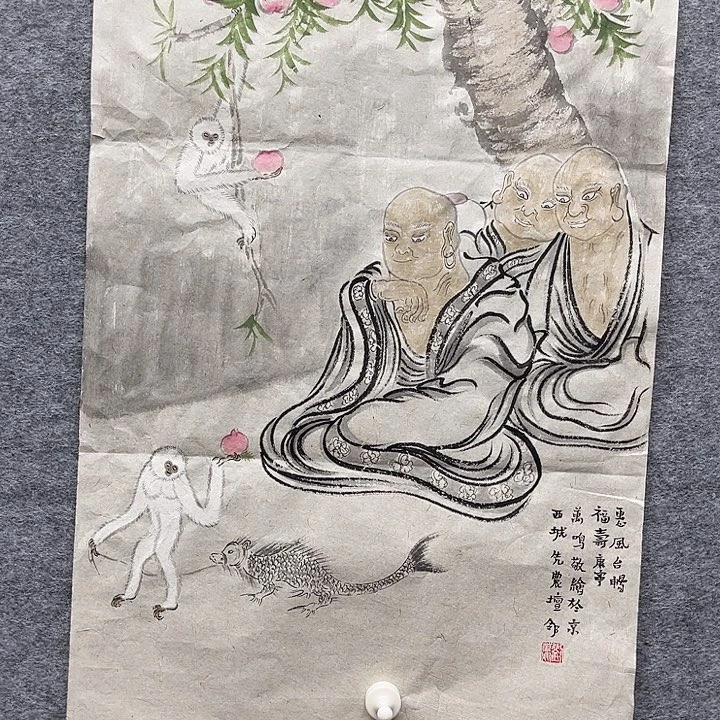 惠風台暢
福壽康寧
萬鳴敬繪於京
西城先農壇邻